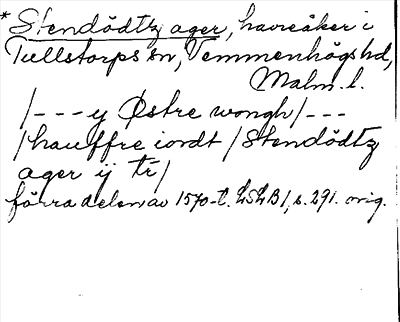 * Stendödtz ager, havreåker i
Tullstorps sn, Vemmenhögs hd,
Malm. l.
/--- y Østre wongh/---
/hauffre iordt/Stendödtz
ager ij tr/
förra delen av 1570-t. LSLB1, s. 291. orig.